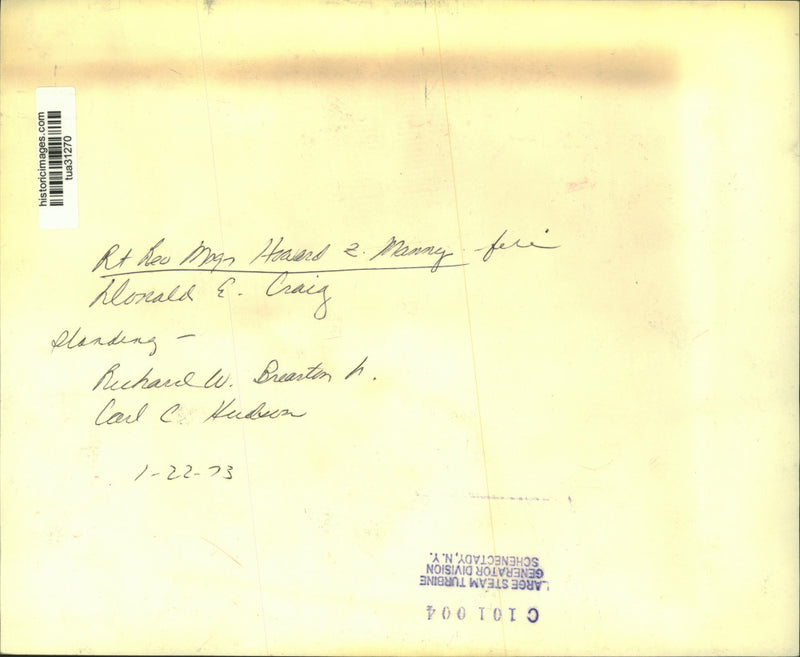 historicimages.com
tua31270
Rt Rev Msgr Howard E. Manny - file
Donald E. Craig
standing -
Richard W. Brearton Jr.
Carl C. Hudson
1-22-73
LARGE STEAM TURBINE
GENERATOR DIVISION
SCHENECTADY, N.Y.
C 101004